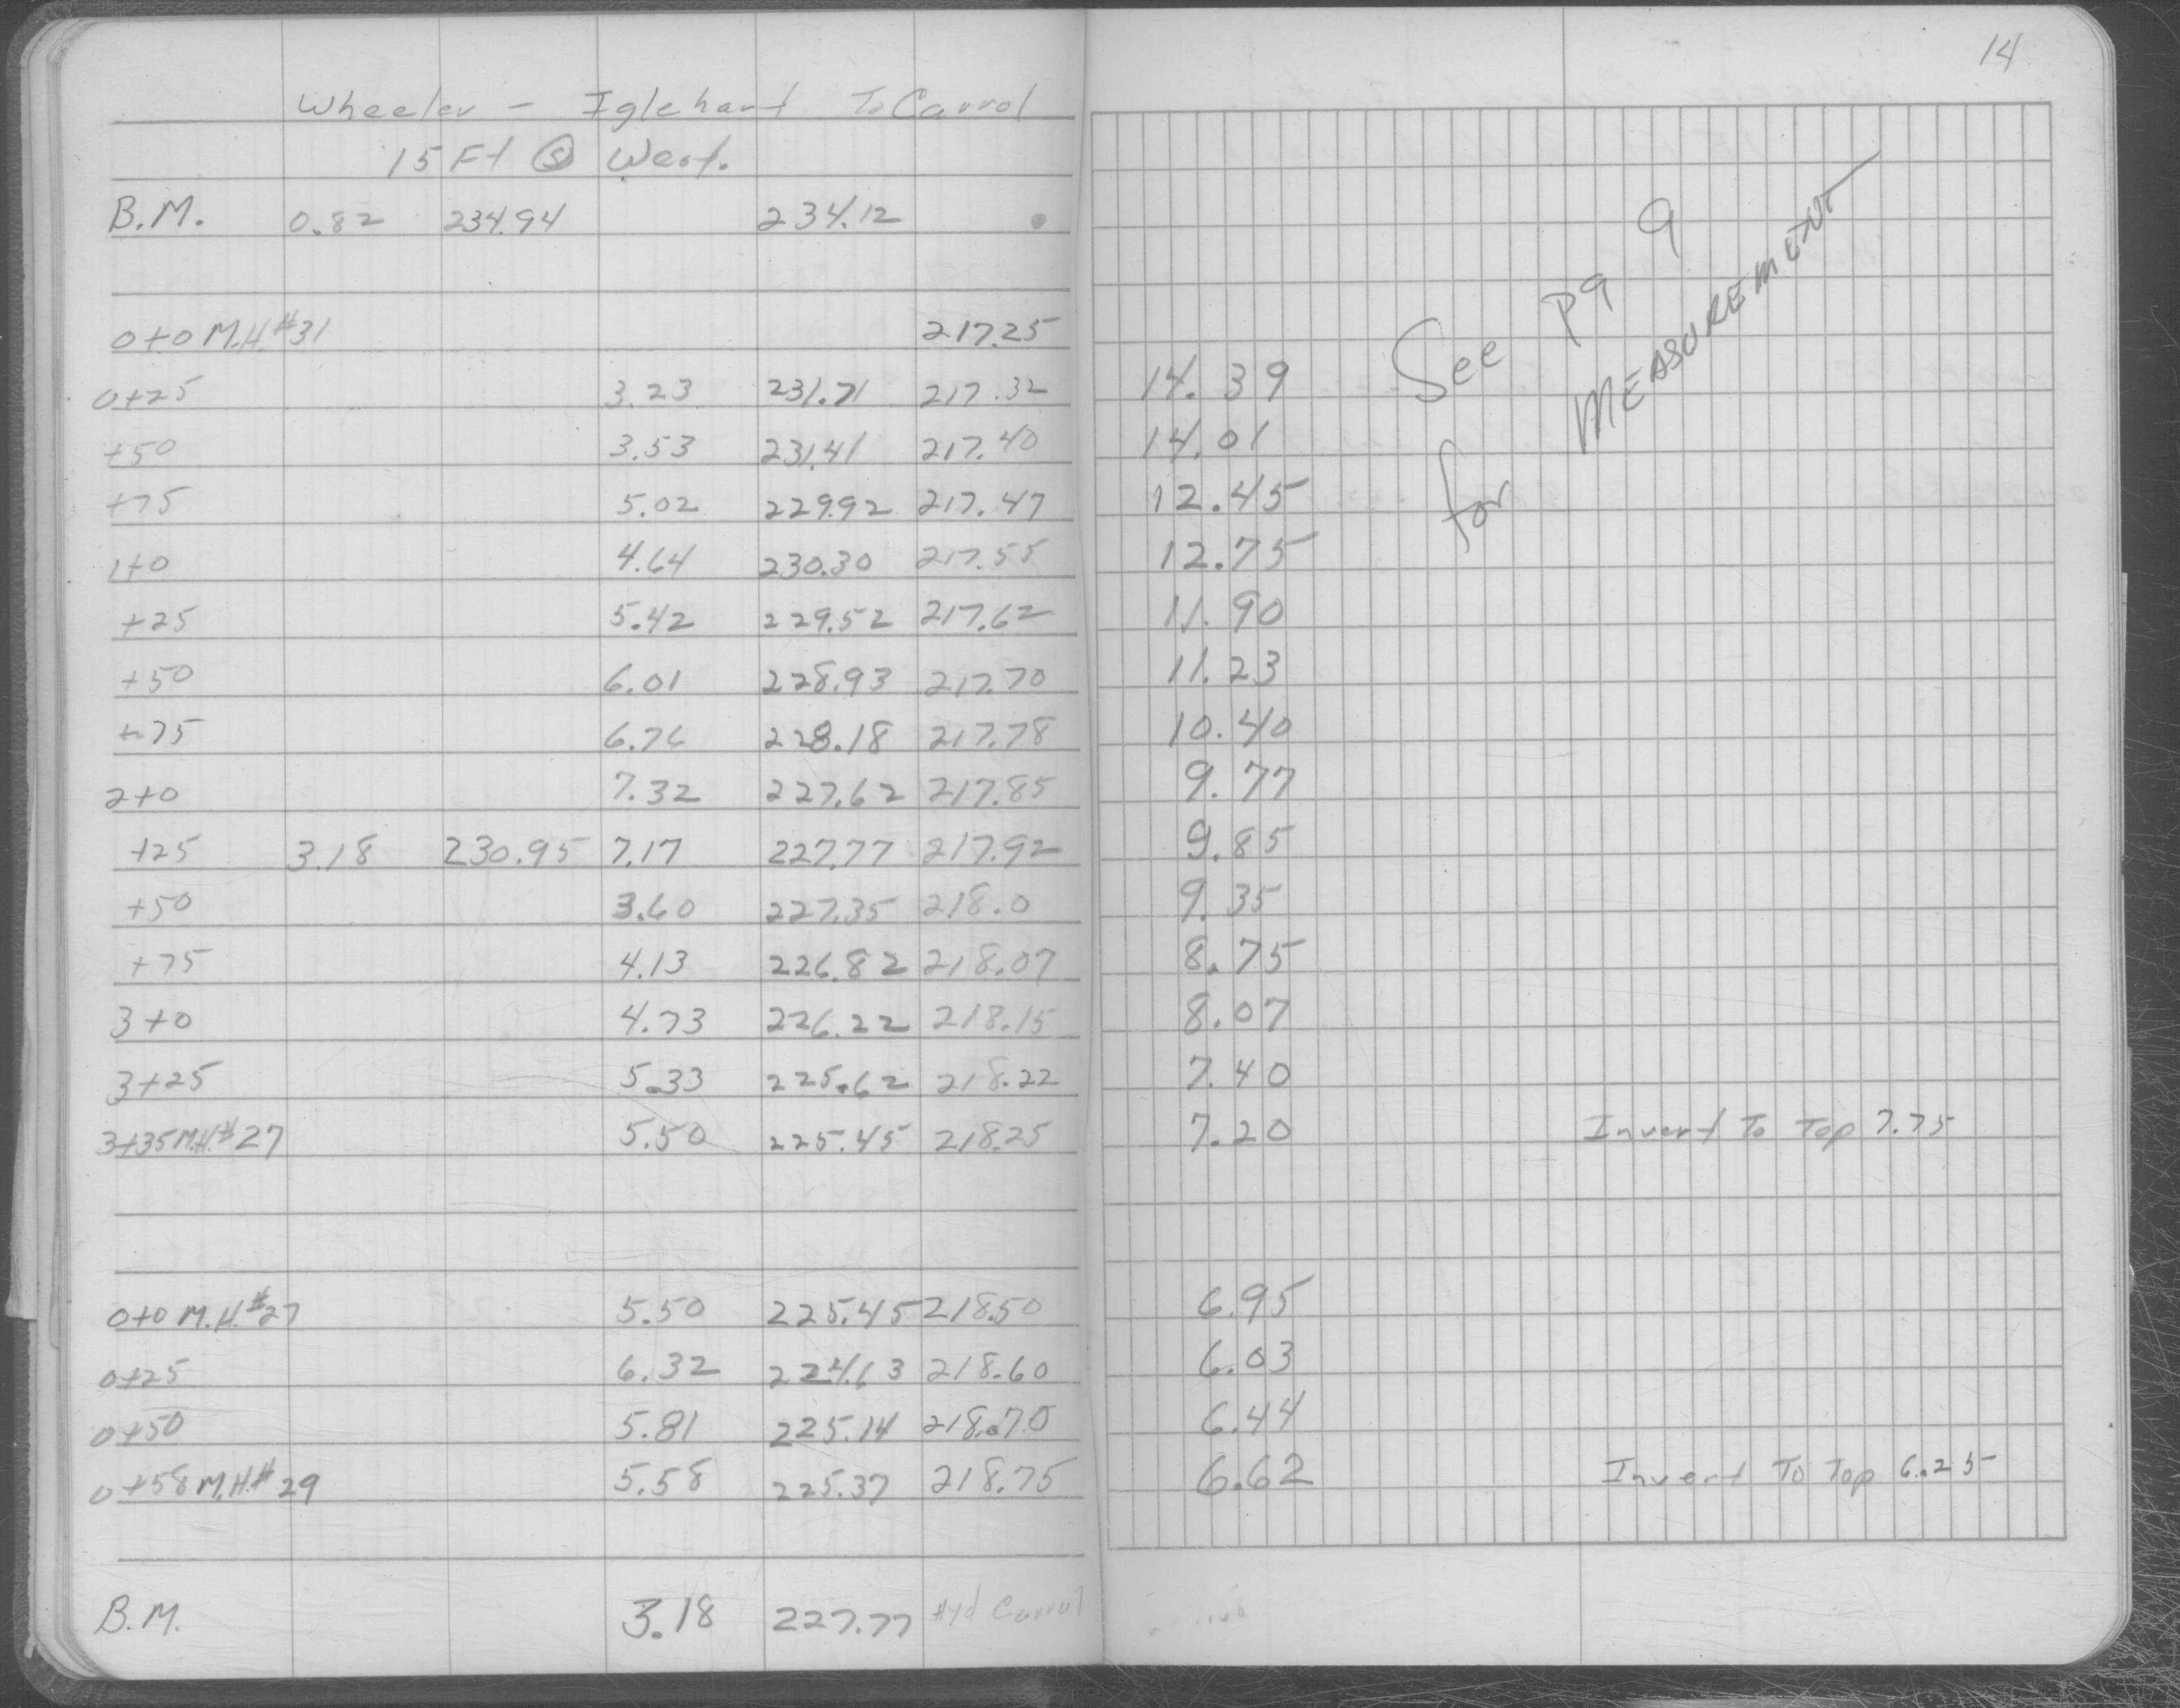 14
Wheeler - Iglehart To Carrol
15 Ft Ⓢ West.
B.M. 0.82 234.94 234.12
0+0 M.H.#31 217.25
0+25 3.23 231.71 217.32 14.39
+50 3.53 231.41 217.40 14.01
+75 5.02 229.92 217.47 12.45
1+0 4.64 230.30 217.55 12.75
+25 5.42 229.52 217.62 11.90
+50 6.01 228.93 217.70 11.23
+75 6.76 228.18 217.78 10.40
2+0 7.32 227.62 217.85 9.77
+25 3.18 230.95 7.17 227.77 217.92 9.85
+50 3.60 227.35 218.0 9.35
+75 4.13 226.82 218.07 8.75
3+0 4.73 226.22 218.15 8.07
3+25 5.33 225.62 218.22 7.40
3+35 M.H.#27 5.50 225.45 218.25 7.20 Invert To Top 7.75
0+0 M.H.#27 5.50 225.45 218.50 6.95
0+25 6.32 224.63 218.60 6.03
0+50 5.81 225.14 218.70 6.44
0+58 M.H.#29 5.58 225.37 218.75 6.62 Invert To Top 6.25
B.M. 3.18 227.77 Hyd Carrol
See P9 9
for MEASUREMENT